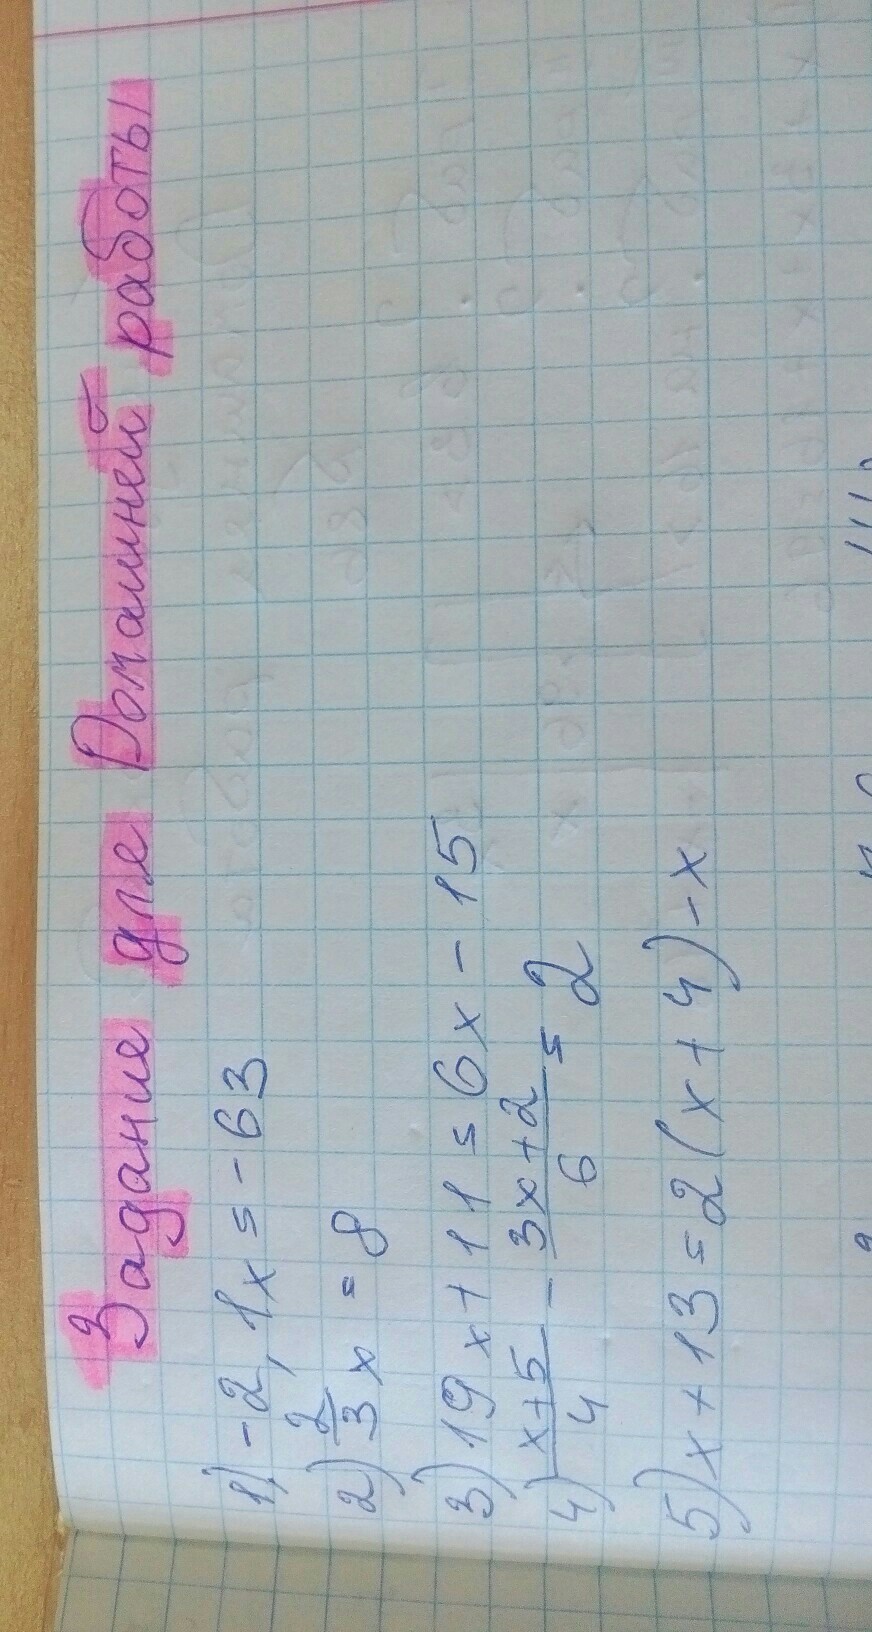 Задание для Домашней работы
1) -2,1x = -63
2) 2/3 x = 8
3) 19x + 11 = 6x - 15
4) x+5/4 - 3x+2/6 = 2
5) x + 13 = 2(x + 4) - x